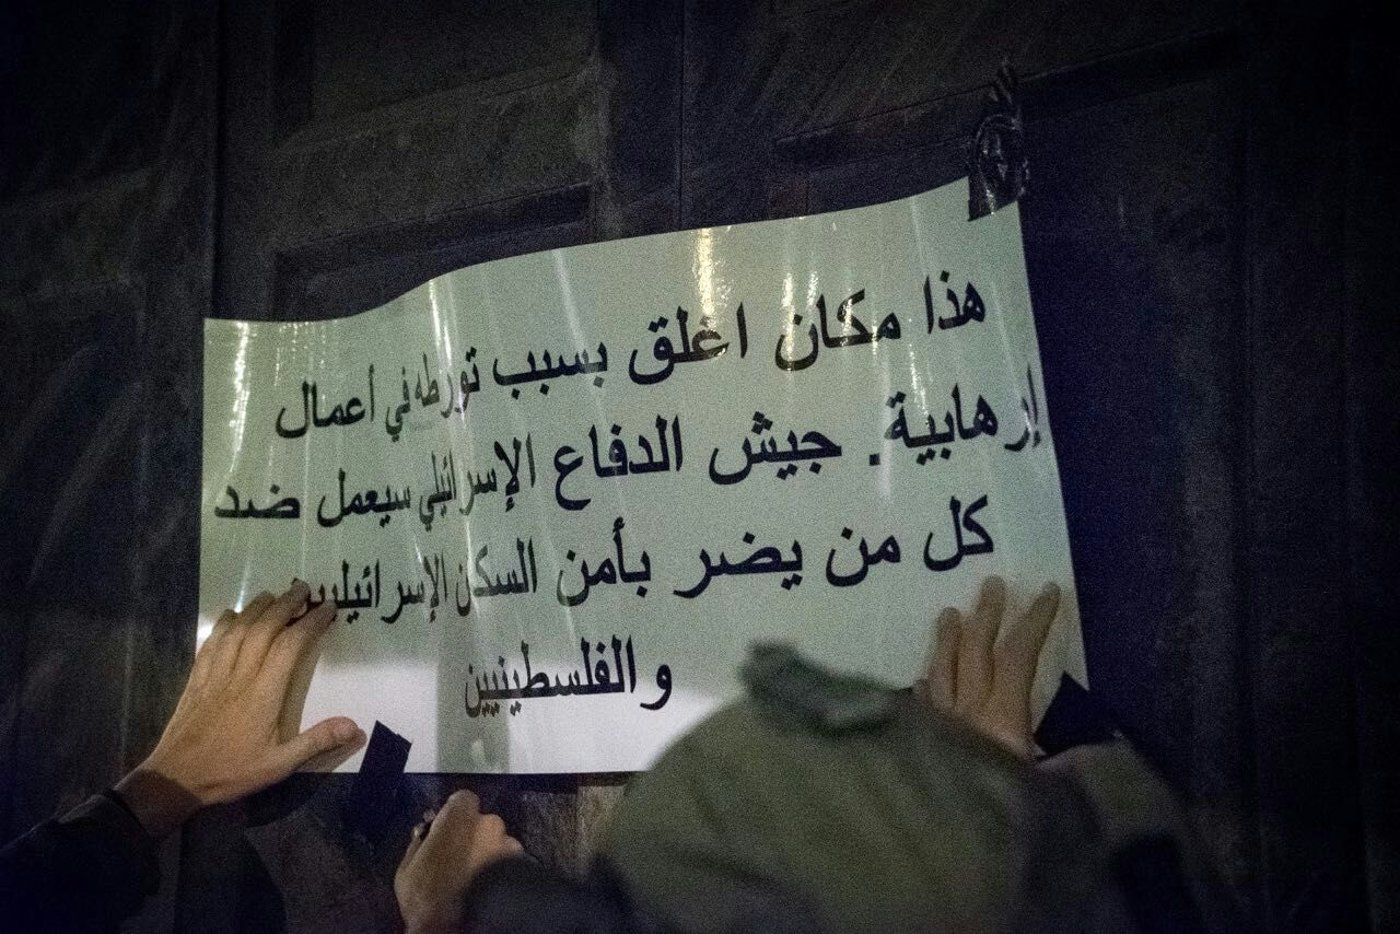 هذا مكان اغلق بسبب تورطه في أعمال
إرهابية. جيش الدفاع الإسرائيلي سيعمل ضد
كل من يضر بأمن السكن الإسرائيليين
و الفلسطينيين